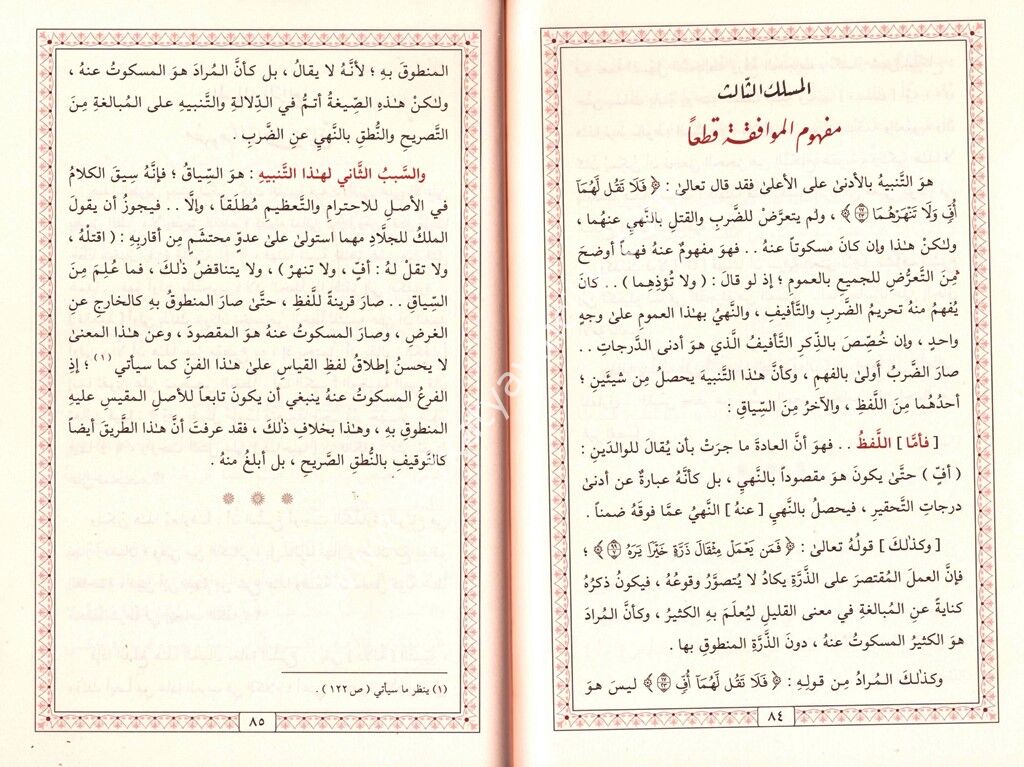 المسلك الثالث
مفهوم الموافقة قطعاً
هوَ التَّنبيهُ بالأدنىٰ على الأعلىٰ فقد قال تعالىٰ : ﴿ فَلَا تَقُل لَّهُمَآ
أُفٍّ وَلَا تَنْهَرْهُمَا ﴾ ، ولم يتعرَّضْ للضَّربِ والقتلِ بالنَّهيِ عنهُما ،
ولكنْ هٰذا وإن كانَ مسكوتاً عنهُ . . فهوَ مفهومٌ عنهُ فهماً أوضحَ
مِنَ التَّعرُّضِ للجميعِ بالعمومِ ؛ إذ لو قالَ : ( ولا تُؤذِهما ) . . كانَ
يُفهمُ منهُ تحريمُ الضَّربِ والتَّأفيفِ ، والنَّهيُ بهٰذا العمومِ علىٰ وجهٍ
واحدٍ ، وإن خُصِّصَ بالذِّكرِ التَّأفيفُ الَّذي هوَ أدنى الدَّرجاتِ . .
صارَ الضَّربُ أولىٰ بالفهمِ ، وكأنَّ هٰذا التَّنبيهَ يحصلُ مِن شيئَينِ ؛
أحدُهُما مِنَ اللَّفظِ ، والآخرُ مِنَ السِّياقِ :
[ فأمَّا ] اللَّفظُ . . فهوَ أنَّ العادةَ ما جرَتْ بأن يُقالَ للوالدَينِ :
( أفّ ) حتَّىٰ يكونَ هوَ مقصوداً بالنَّهيِ ، بل كأنَّهُ عبارةٌ عن أدنىٰ
درجاتِ التَّحقيرِ ، فيحصلُ بالنَّهيِ [ عنهُ ] النَّهيُ عمَّا فوقَهُ ضمناً .
[ وكذٰلكَ ] قولُهُ تعالىٰ : ﴿ فَمَن يَعْمَلْ مِثْقَالَ ذَرَّةٍ خَيْرًا يَرَهُ ﴾ ؛
فإنَّ العملَ المُقتصَرَ على الذَّرَّةِ يكادُ لا يُتصوَّرُ وقوعُهُ ، فيكونُ ذكرُهُ
كنايةً عنِ المُبالغةِ في معنى القليلِ ليُعلَمَ بهِ الكثيرُ ، وكأنَّ المُرادَ
هوَ الكثيرُ المسكوتُ عنهُ ، دونَ الذَّرَّةِ المنطوقِ بها .
وكذٰلكَ المُرادُ مِن قولِهِ : ﴿ فَلَا تَقُل لَّهُمَآ أُفٍّ ﴾ ليسَ هوَ
٨٤
المنطوقَ بهِ ؛ لأنَّهُ لا يقالُ ، بل كأنَّ المُرادَ هوَ المسكوتُ عنهُ ،
ولٰكنْ هٰذهِ الصِّيغةُ أتمُّ في الدِّلالةِ والتَّنبيهِ على المُبالغةِ مِنَ
التَّصريحِ والنُّطقِ بالنَّهيِ عنِ الضَّربِ .
والسَّببُ الثَّاني لهٰذا التَّنبيهِ : هوَ السِّياقُ ؛ فإنَّهُ سِيقَ الكلامُ
في الأصلِ للاحترامِ والتَّعظيمِ مُطلَقاً ، وإلَّا . . فيجوزُ أن يقولَ
الملكُ للجلَّادِ مهما استولىٰ علىٰ عدوٍّ محتشَمٍ مِن أقاربِهِ : ( اقتلْهُ ،
ولا تقلْ لهُ : أفّ ، ولا تنهر ) ، ولا يتناقضُ ذٰلكَ ، فما عُلِمَ مِنَ
السِّياقِ . . صارَ قرينةً للَّفظِ ، حتَّىٰ صارَ المنطوقُ بهِ كالخارجِ عنِ
الغرضِ ، وصارَ المسكوتُ عنهُ هوَ المقصودَ ، وعن هٰذا المعنىٰ
لا يحسنُ إطلاقُ لفظِ القياسِ علىٰ هٰذا الفنِّ كما سيأتي (١) ؛ إذِ
الفرعُ المسكوتُ عنهُ ينبغي أن يكونَ تابعاً للأصلِ المقيسِ عليهِ
المنطوقِ بهِ ، وهٰذا بخلافِ ذٰلكَ ، فقد عرفتَ أنَّ هٰذا الطَّريقَ أيضاً
كالتَّوقيفِ بالنُّطقِ الصَّريحِ ، بل أبلغُ منهُ .
(١) ينظر ما سيأتي ( ص ١٢٢ ) .
٨٥